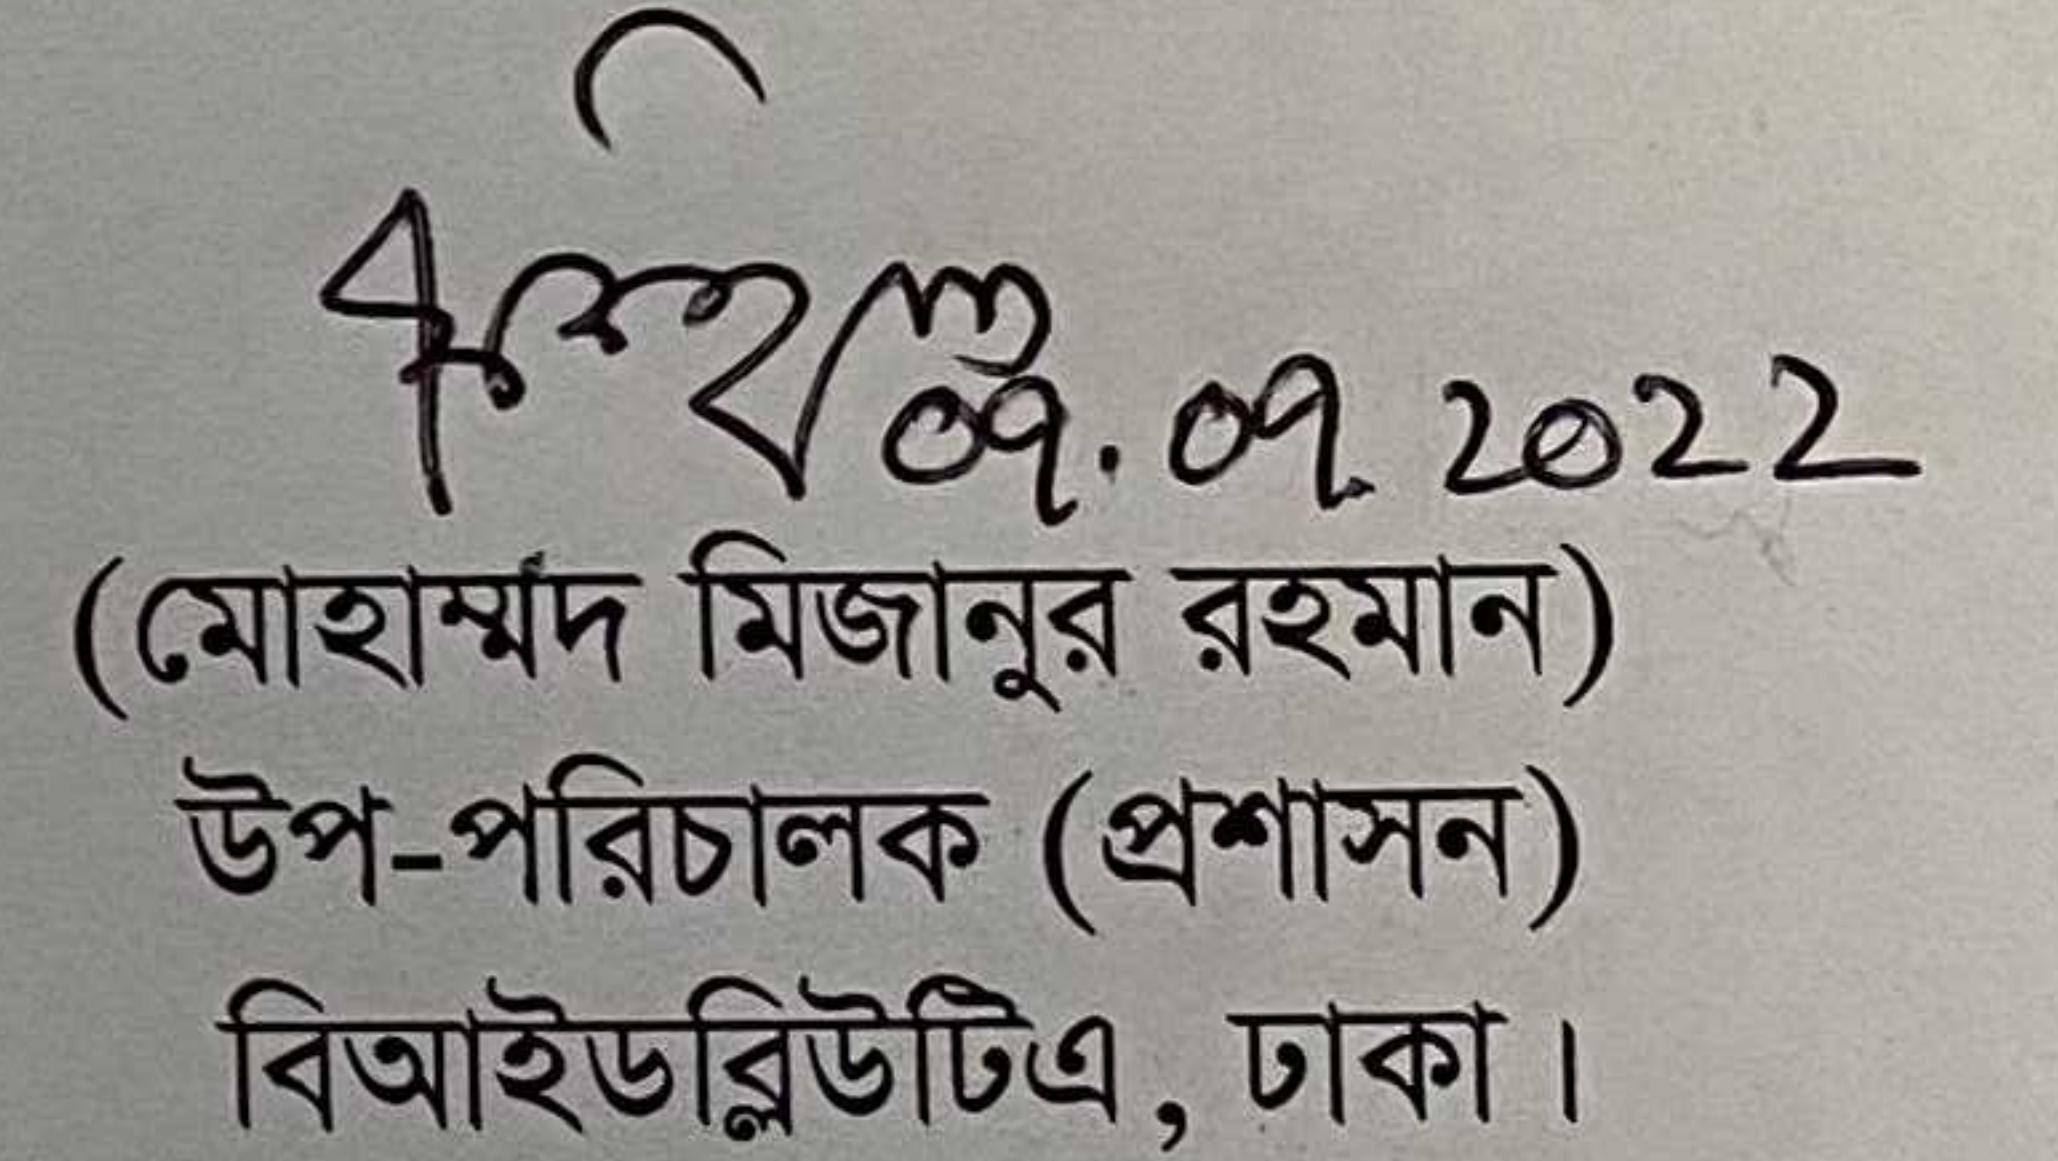 ০৭.০৭.2022
(মোহাম্মদ মিজানুর রহমান)
উপ-পরিচালক (প্রশাসন)
বিআইডব্লিউটিএ, ঢাকা।